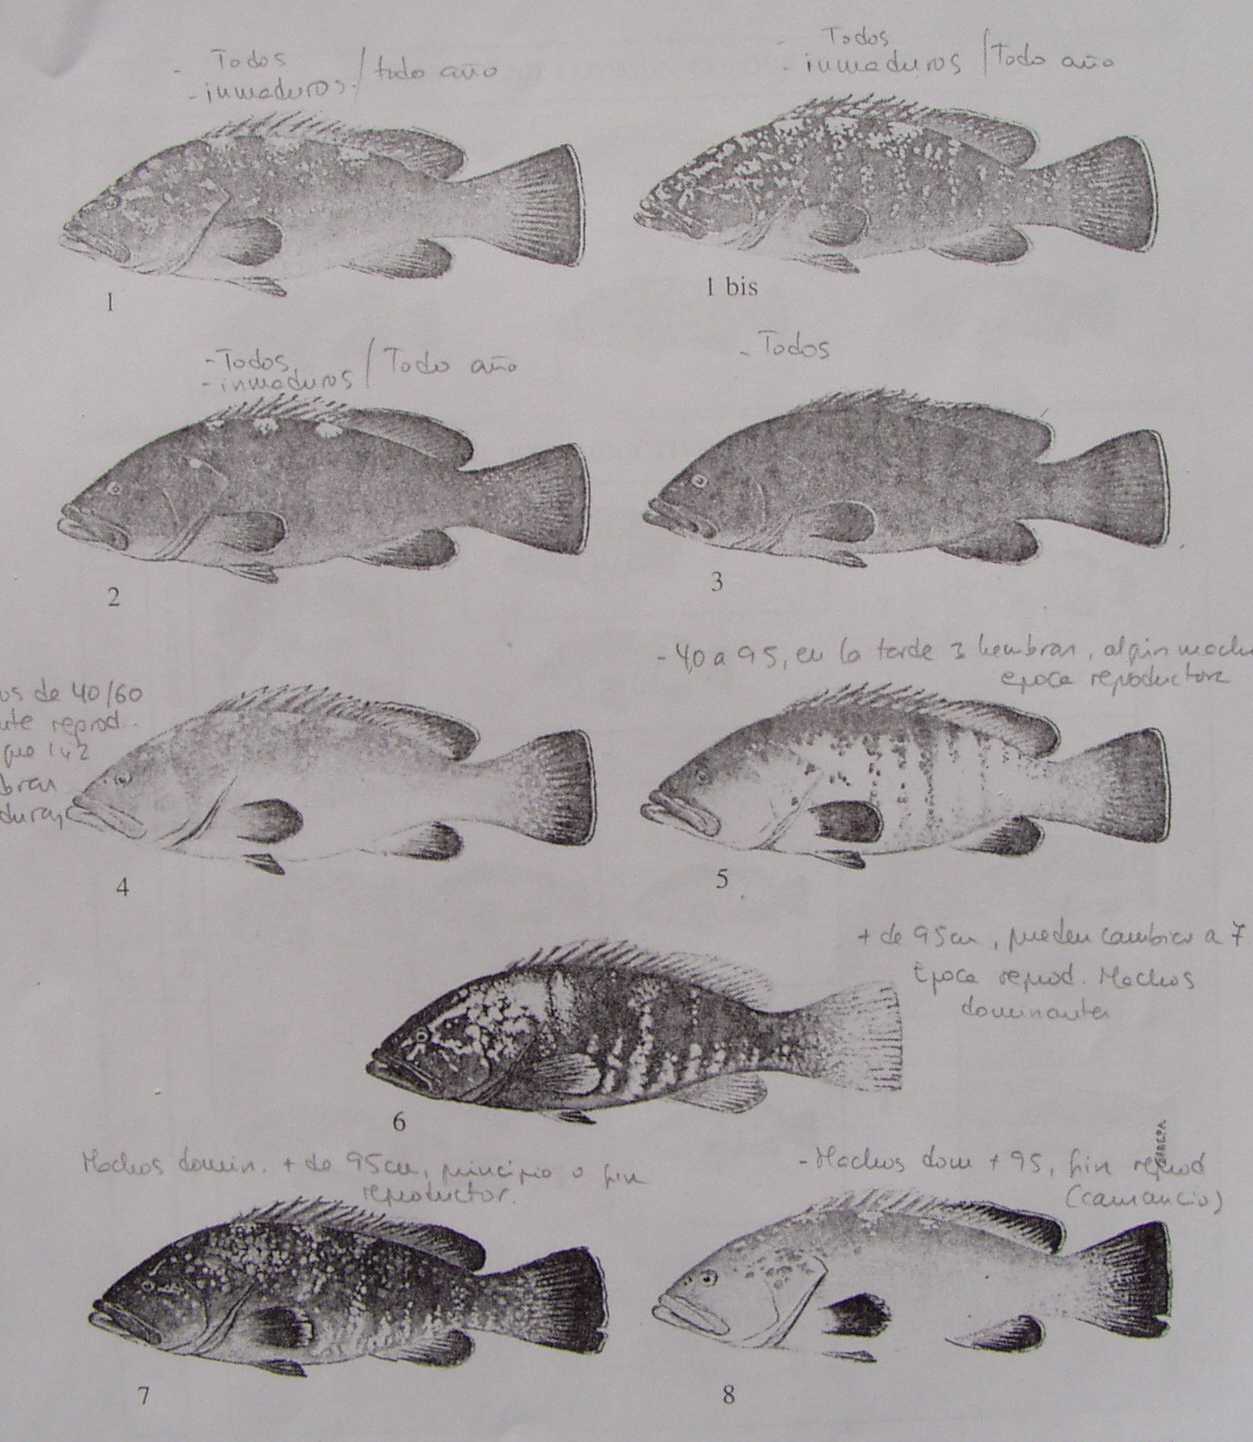 - Todos
- inmaduros / todo año
- Todos
- inmaduros / Todo año
1
1 bis
- Todos
- inmaduros / Todo año
- Todos
2
3
- 40 a 95, en la tarde 3 hembran, algún macho
epoca reproductora
os de 40/60
nte reprod.
que 1 y 2
bran
duras
4
5
+ de 95 cm, pueden cambiar a 7
Epoca reprod. Machos
dominantes
6
Machos domin. + de 95 cm, principio o fin
reproductor.
- Machos dom + 95, fin reprod
(cansancio)
7
8